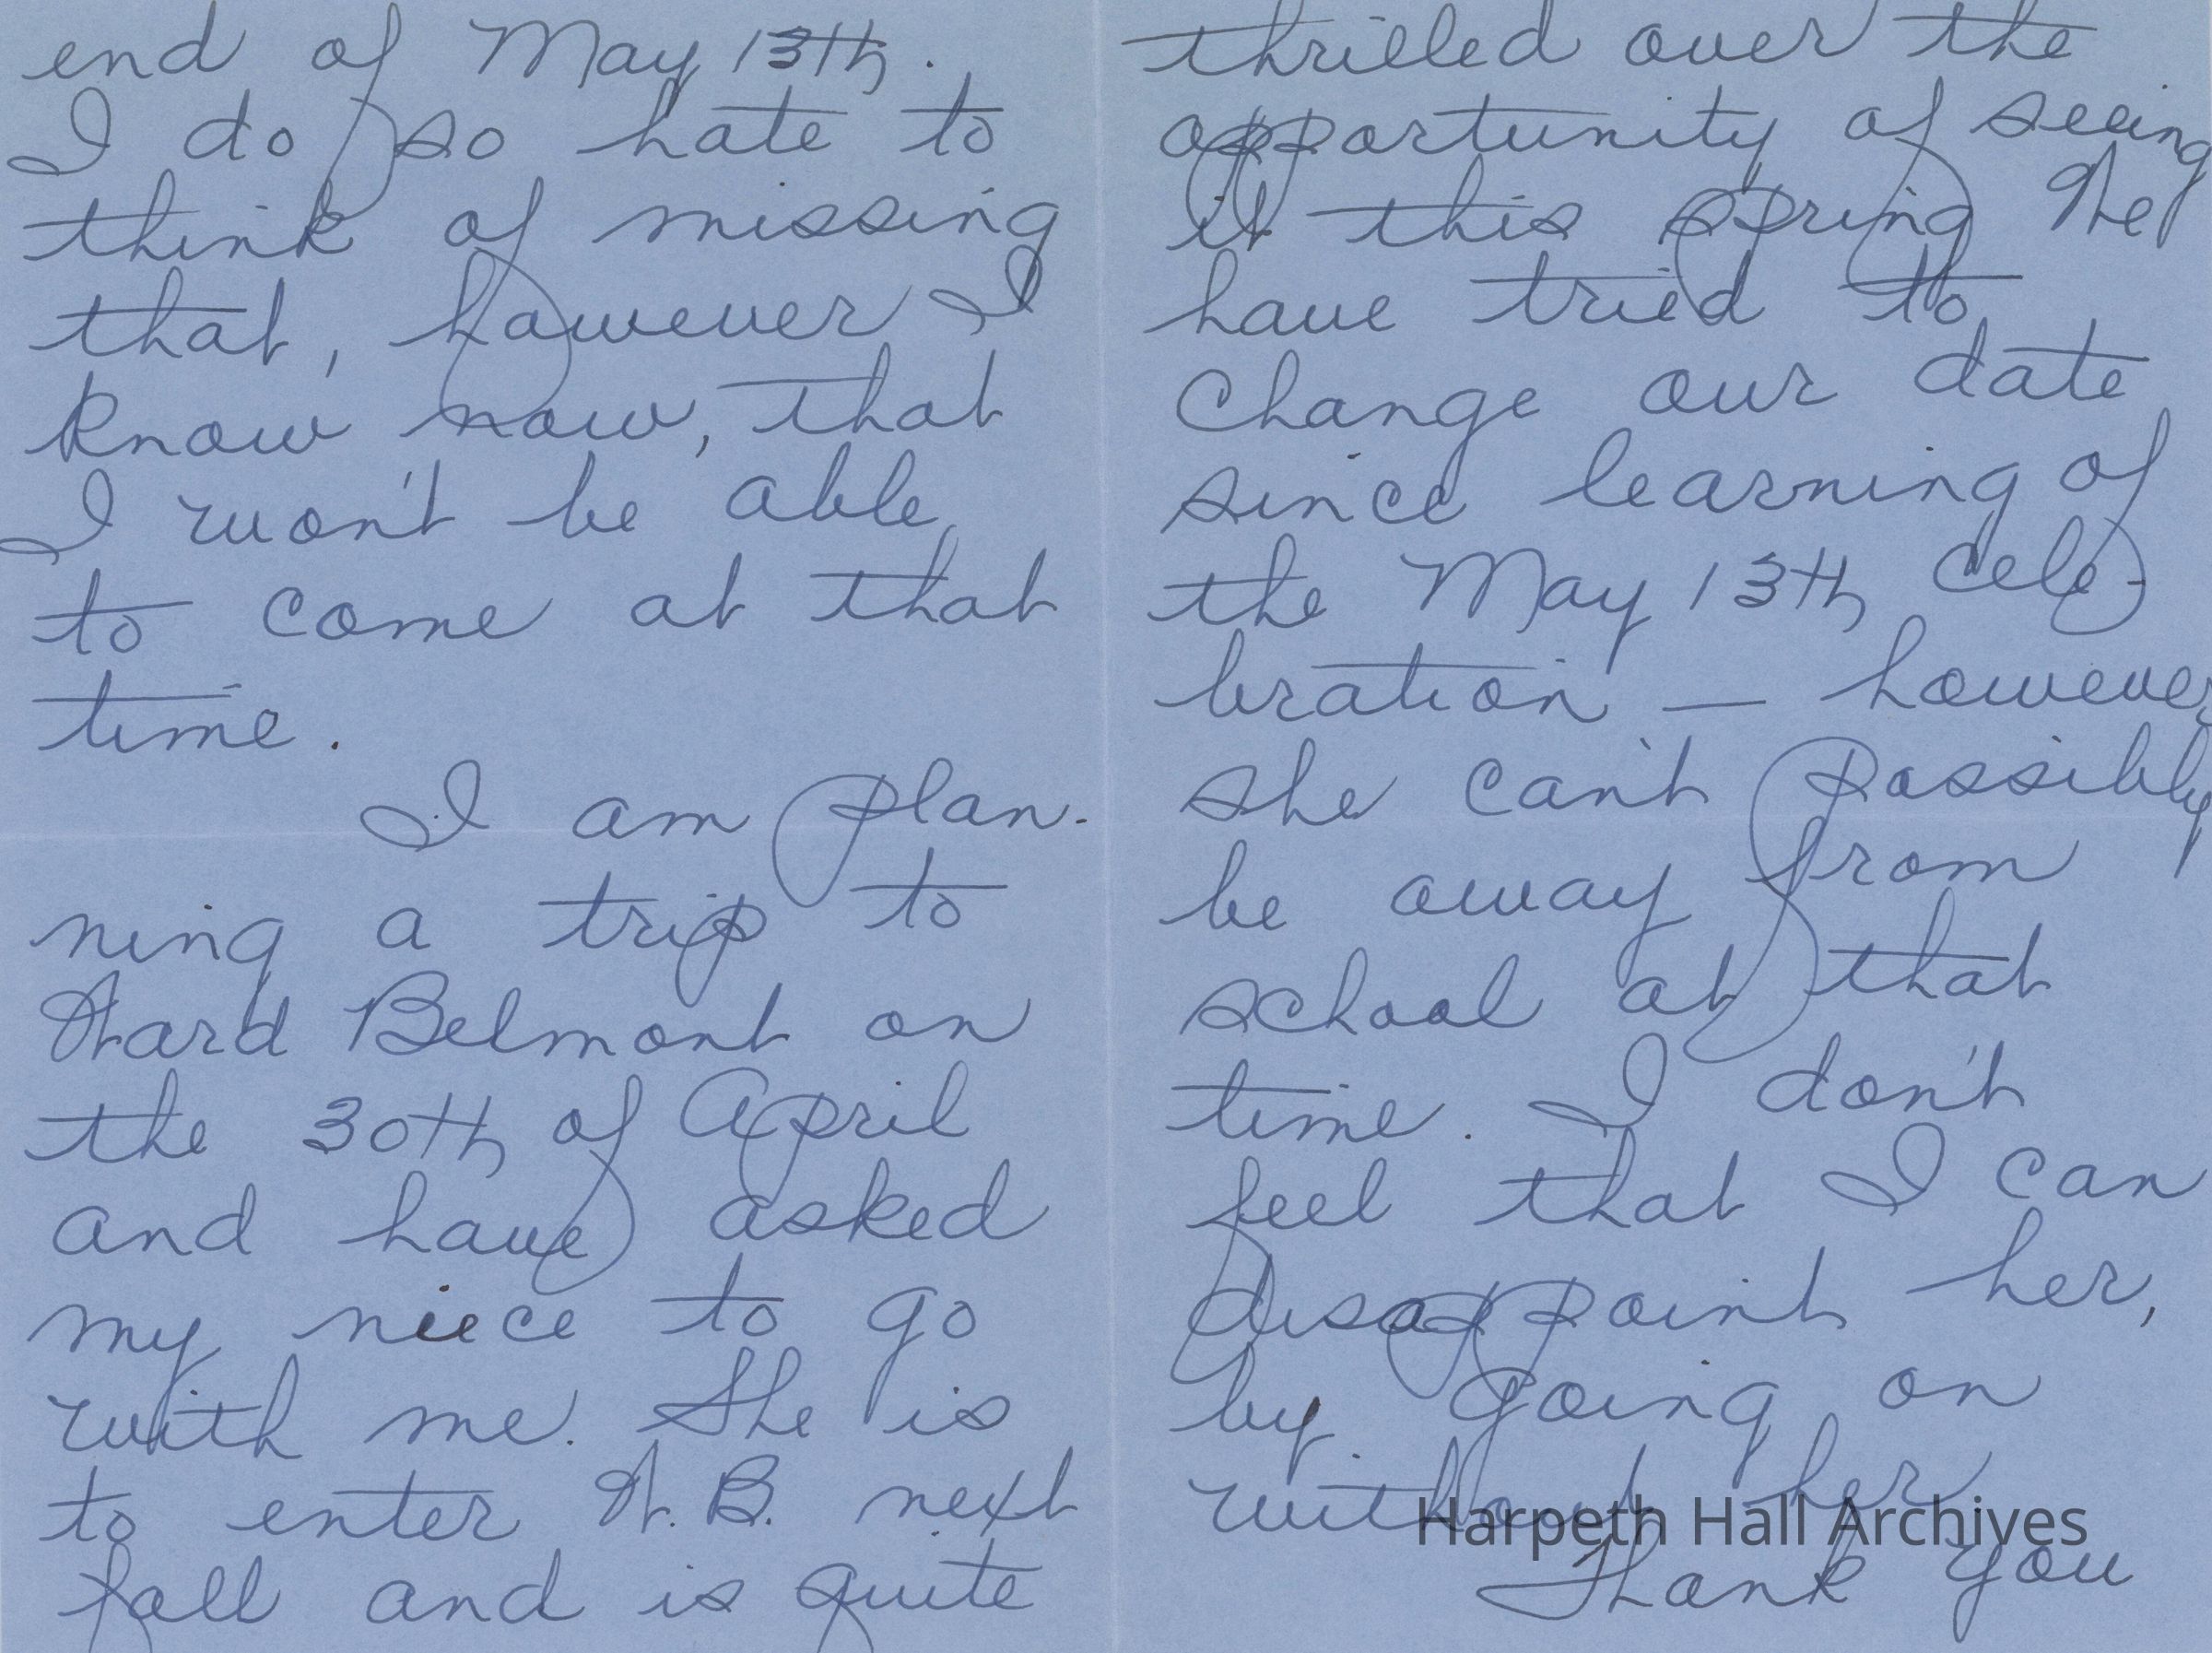 end of May 13th.
I do so hate to
think of missing
that, however I
know now, that
I won't be able
to come at that
time.
I am plan-
ning a trip to
Ward Belmont on
the 30th of April
and have asked
my niece to go
with me. She is
to enter W. B. next
fall and is quite
thrilled over the
opportunity of seeing
it this spring We
have tried to
change our date
since learning of
the May 13th cele-
bration — however
she can't possibly
be away from
school at that
time. I don't
feel that I can
disappoint her,
by going on
without her
Thank you
Harpeth Hall Archives